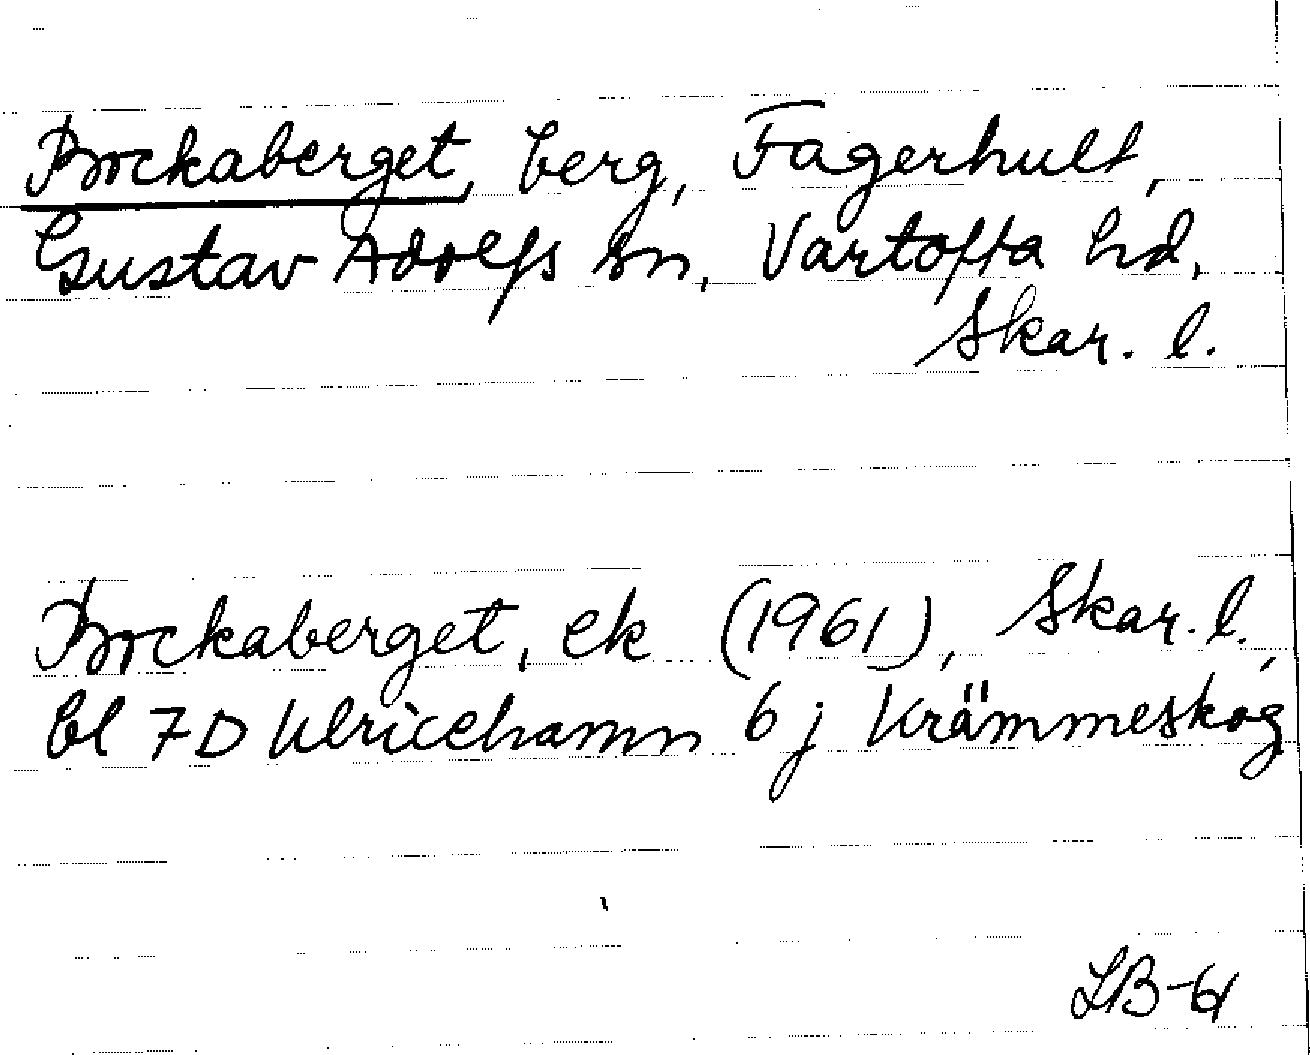 Bockaberget, berg, Fagerhult,
Gustav Adolfs sn, Vartofta hd,
Skar. l.
Bockaberget, ek (1961), Skar. l.,
bl 7D Ulricehamn 6 j Krämmeskog
LB-61